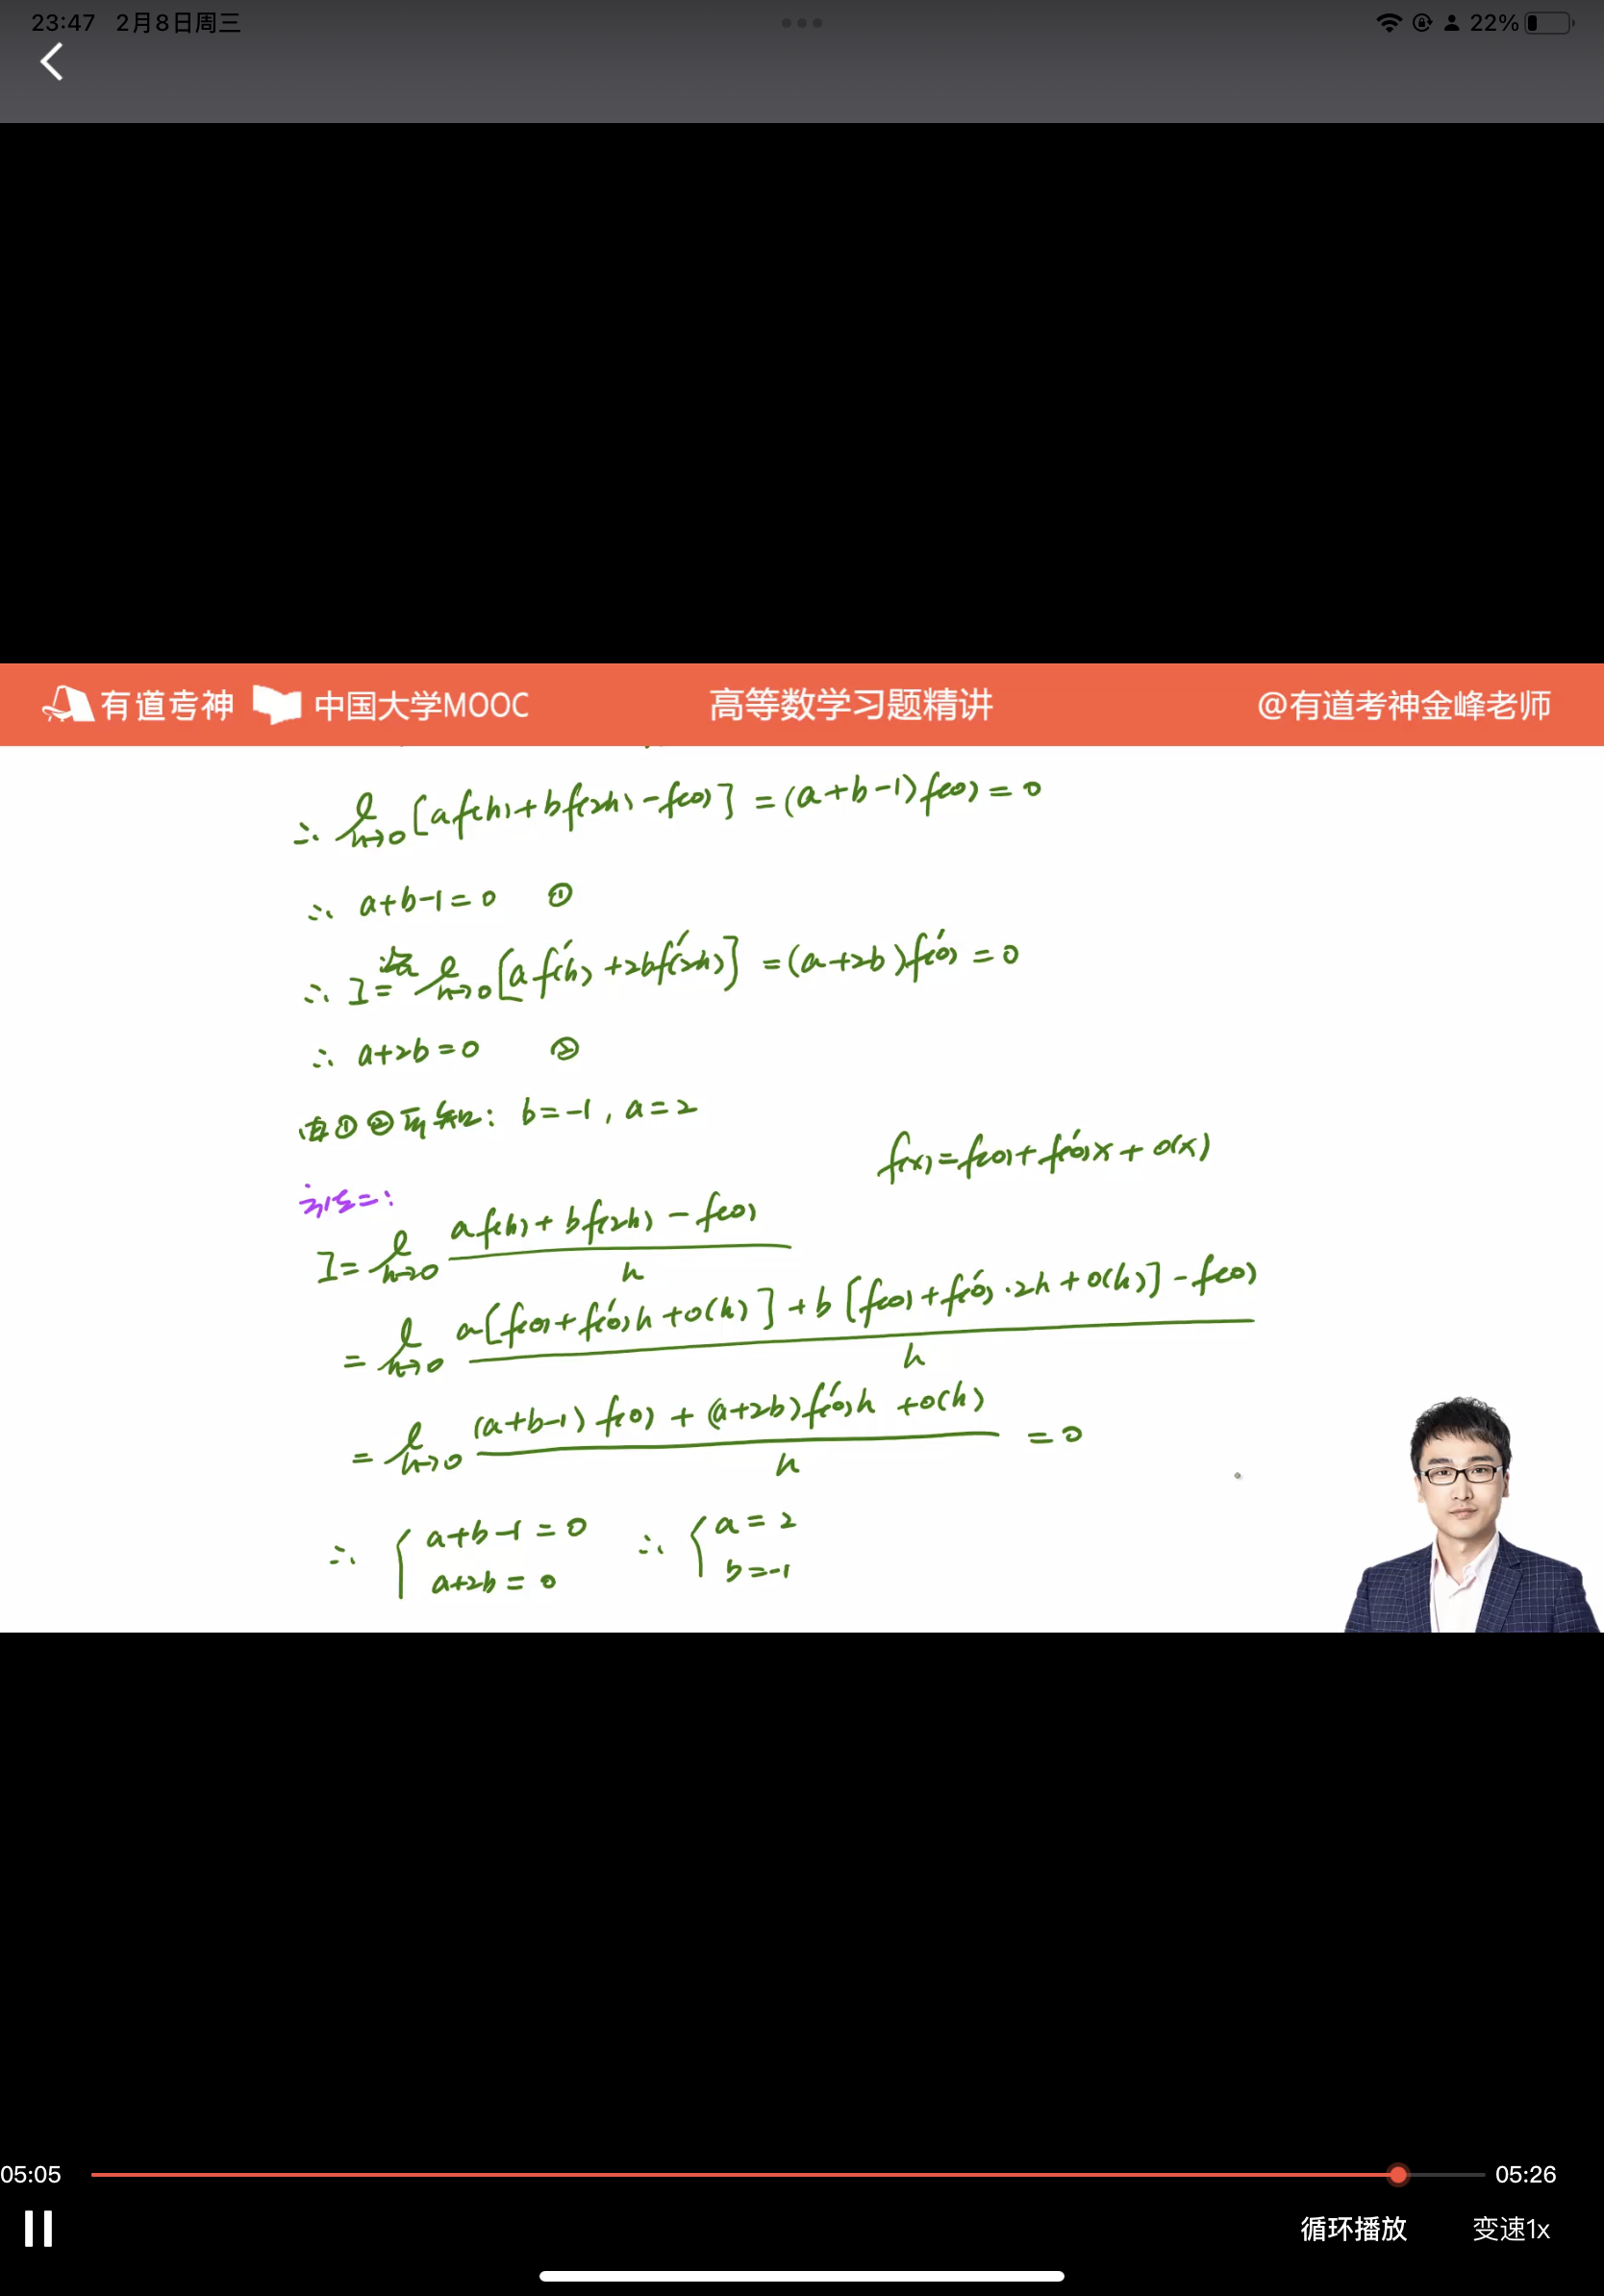 23:47 2月8日周三 22%
有道考神 中国大学MOOC 高等数学习题精讲 @有道考神金峰老师
∴ l h→0 [af(h)+bf(2h)-f(0)] =(a+b-1)f(0)=0
∴ a+b-1=0 ①
∴ I 洛= l h→0 [af'(h)+2bf'(2h)] =(a+2b)f'(0)=0
∴ a+2b=0 ②
由①②可知: b=-1, a=2
f(x)=f(0)+f'(0)x+o(x)
方法二:
I= l h→0 af(h)+bf(2h)-f(0) / h
= l h→0 a[f(0)+f'(0)h+o(h)]+b[f(0)+f'(0)·2h+o(h)]-f(0) / h
= l h→0 (a+b-1)f(0)+(a+2b)f'(0)h+o(h) / h =0
∴ { a+b-1=0 ∴ { a=2
a+2b=0 b=-1
05:05 05:26
循环播放 变速1x